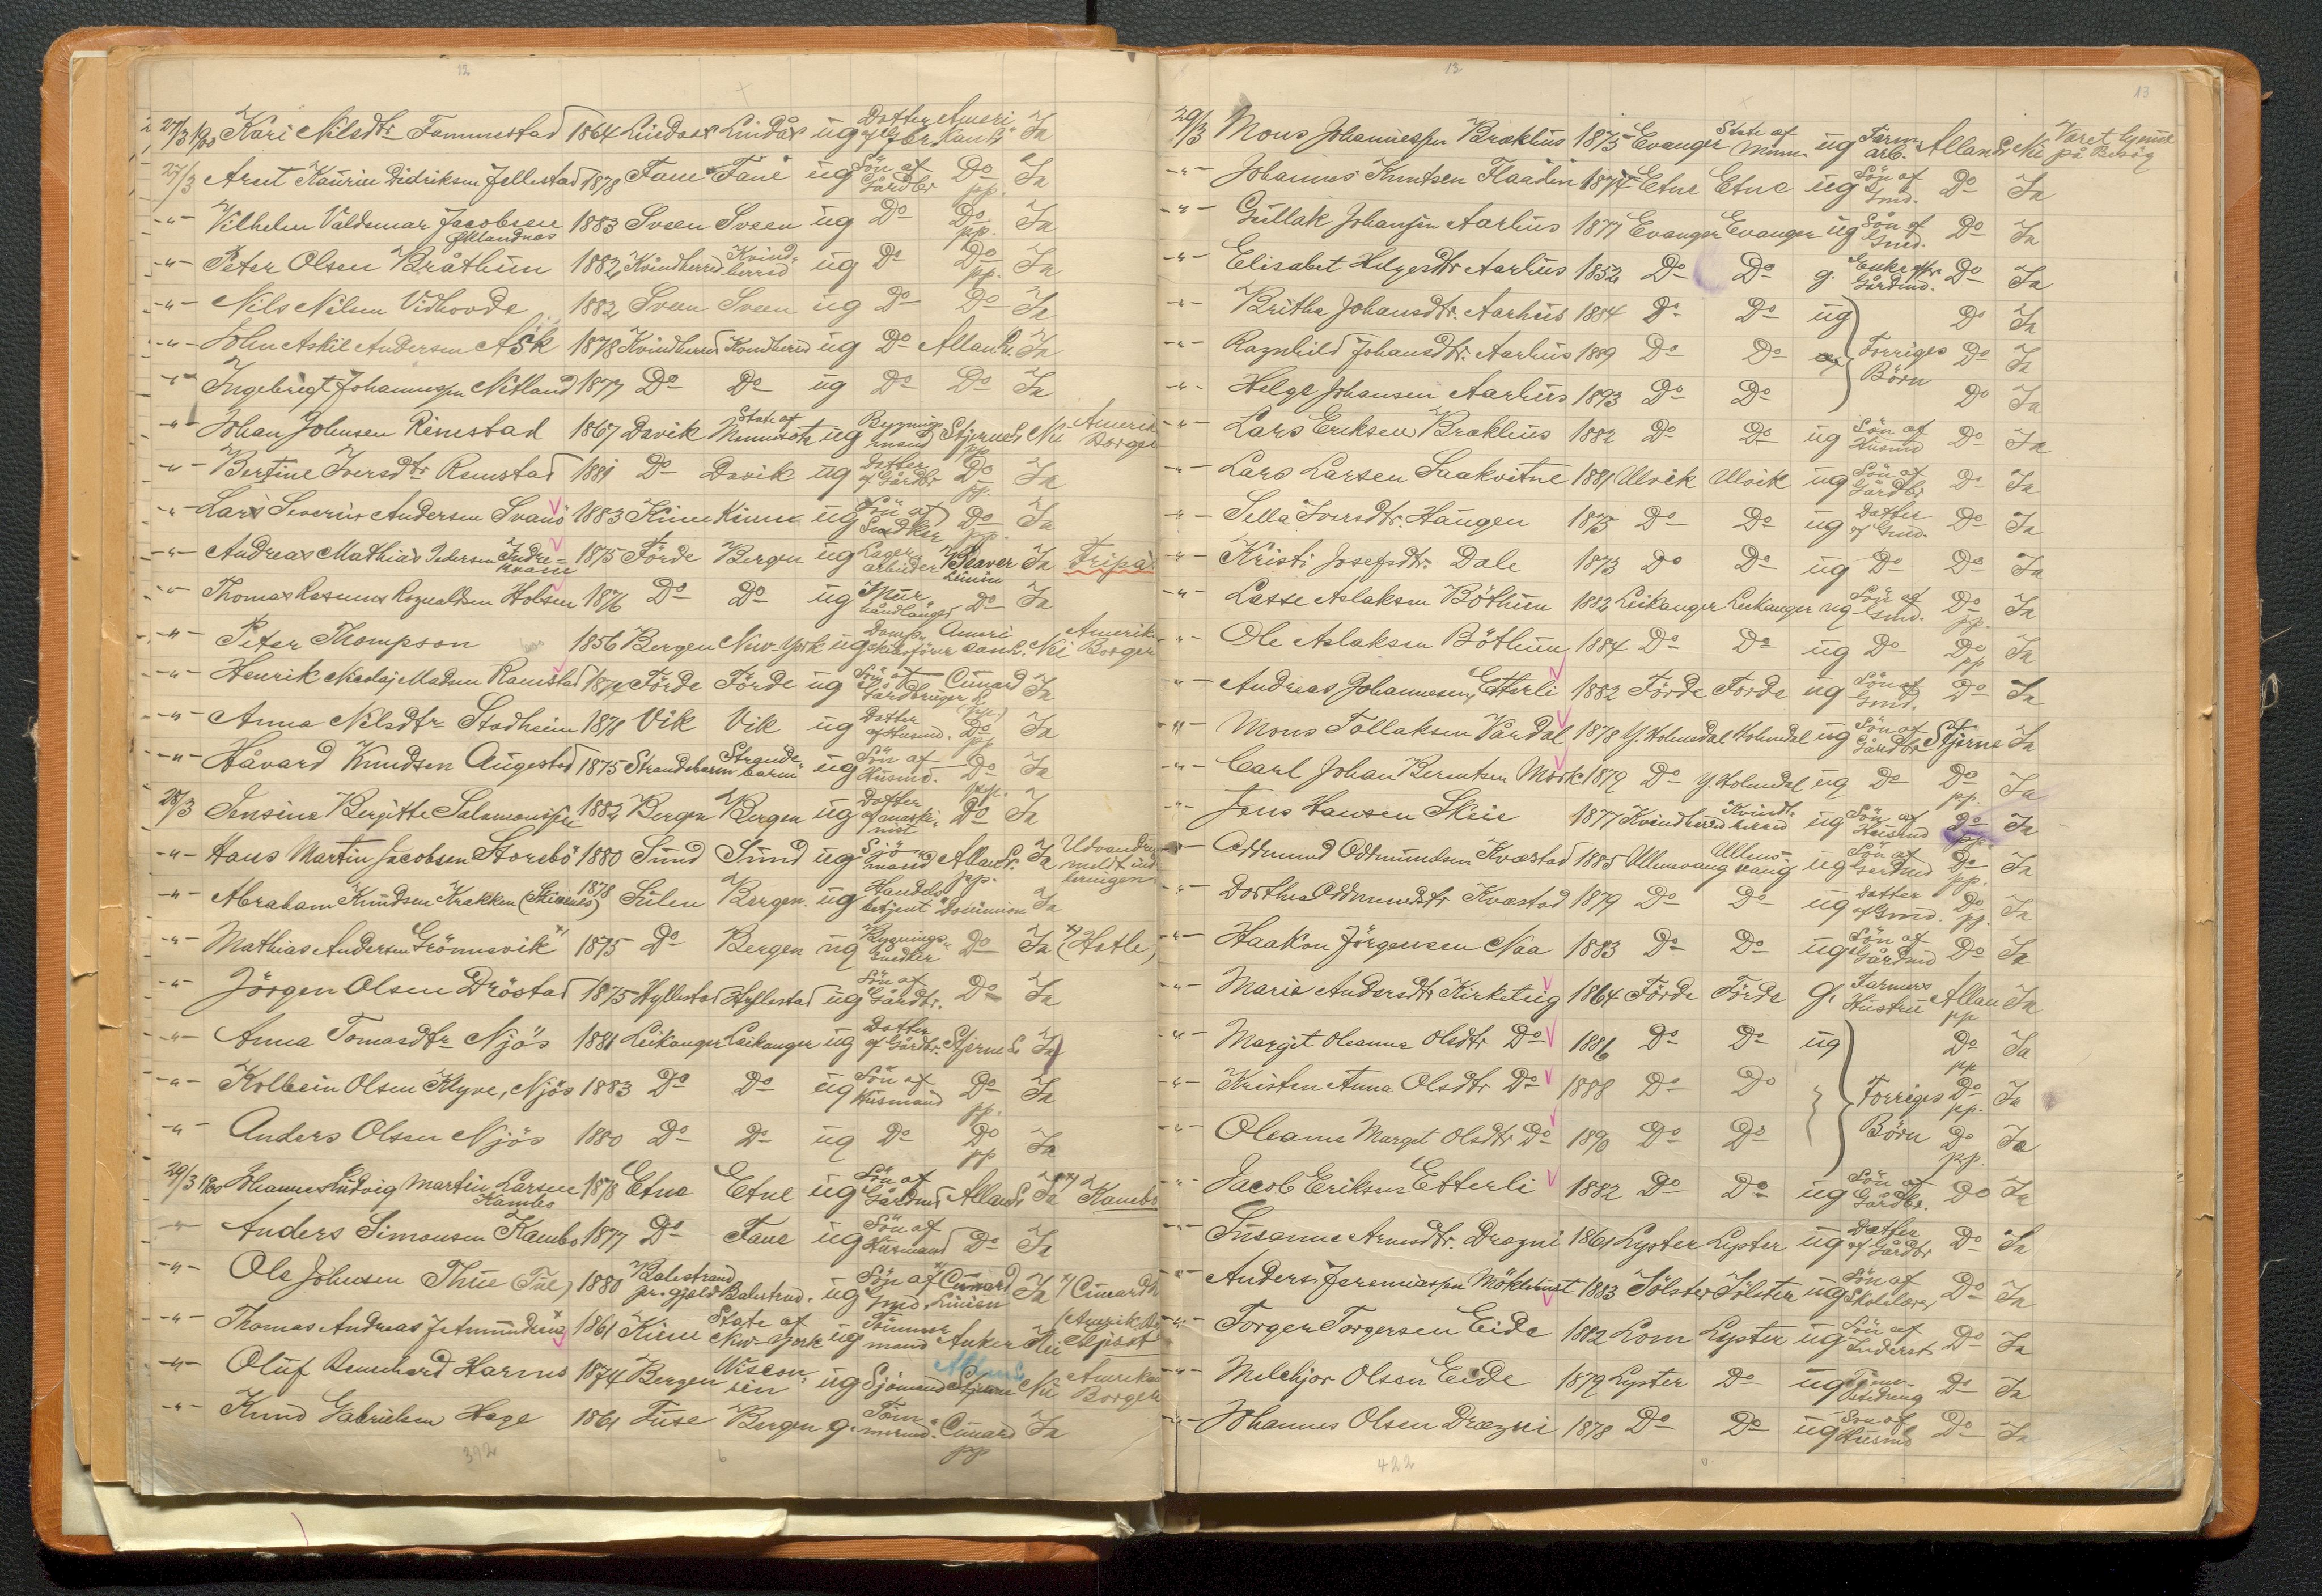 12
27/3 1900 Kari Nilsdtr Fammestad 1864 Lindaas Lindås ug Datter af Gbr. Amerikansk Ja
27/3 Arnt Kaurin Didriksen Jellestad 1878 Fane Fane ug Sön af Gårdbr Do pp. Ja
-"- Vilhelm Valdemar Jacobsen Öklandnæs 1883 Sveen Sveen ug Do Do pp. Ja
-"- Peter Olsen Bråthun 1882 Kvindherred Kvindherred ug Do Do pp. Ja
-"- Nils Nilsen Vidhovde 1882 Sveen Sveen ug Do Do Ja
-"- John Askil Andersen Ask 1878 Kvindherred Kvindherred ug Do Allan L. Ja
-"- Ingebrigt Johannessen Netland 1877 Do Do ug Do Do Ja
-"- Johan Johnsen Rimstad 1867 Davik State af Minnesota ug Bygningssned. Stjerne L. pp Nei Amerik Borger
-"- Bertine Iversdtr Rimstad 1881 Do Davik ug Datter af Gårdbr Do pp. Ja
-"- Lars Severin Andersen Svanö 1883 Kinn Kinn ug Sön af Snedker Do pp. Ja
-"- Andreas Mathias Pedersen Indrekvam 1875 Förde Bergen ug Lagerarbeider Beaver Linien Ja Fripas
-"- Thomas Rasmus Rognaldsen Holsen 1876 Do Do ug Murhåndlanger Do Ja
-"- Peter Thompson 1856 Bergen New-York ug Dampskibsförer Amerikansk. Nei Amerik Borger
-"- Henrik Nicolaj Madsen Ramstad 1874 Förde Förde ug Sön af Gårdbruger Cunard L. (pp.) Ja
-"- Anna Nilsdtr Stadheim 1878 Vik Vik ug Datter af Husmd. Do pp Ja
-"- Håvard Knudsen Augestad 1875 Strandebarm Strandebarm ug Sön af Husmd. Do pp. Ja
28/3 Jensine Bergitte Salamonsen 1882 Bergen Bergen ug Datter af maskinist Do Ja
-"- Hans Martin Jacobsen Storebö 1880 Sund Sund ug Sjömand Allan L. pp. Ja
-"- Abraham Knudsen Krakken (Skivenes) 1878 Sulen Bergen ug Handelsbetjent Dominion Ja
-"- Mathias Andersen Grönnevik x) 1875 Do Bergen ug Bygningssnedker Do Ja x) (Hatle)
-"- Jörgen Olsen Dröstad 1875 Hyllestad Hyllestad ug Sön af Gårdbr. Do Ja
-"- Anna Tomasdtr Njös 1881 Leikanger Leikanger ug Datter af Gårdbr. Stjerne L. Ja
-"- Kolbein Olsen Klyve, Njös 1883 Do Do ug Sön af Husmand Do pp. Ja
-"- Anders Olsen Njös 1880 Do Do ug Do Do pp Ja
29/3 1900 Johannes Ludvig Martin Larsen Kambo 1878 Etne Etne ug Sön af Gårdmd Allan L. Ja x) Kambo
-"- Anders Simonsen Kambo 1877 Do Fane ug Sön af Husmand Do Ja
-"- Ole Johnsen Thue (Tue) 1880 Balestrand pr.gjeld Balestrand. ug Sön af Gmd. x) Cunard Linien Ja x) Cunard
-"- Thomas Andreas J. Amundsen 1861 Kinn State af New-York ug Tömmermand Anker Nei
-"- Oluf Bernhard Harms 1874 Bergen Wisconsin ug Sjömand Stjerne Nei Amerikan Borger
-"- Knud Gabrielsen Hage 1861 Fuse Bergen g. Tömmermd. Cunard pp Ja
392 6
13 13
29/3 Mons Johannessen Brækhus 1875 Evanger State af Minn. ug Farmarb. Allan L. Nei Været hjemme på Besög
-"- Johannes Knutsen Flaadin 1874 Etne Etne ug Sön af Gmd. Do Ja
-"- Gullak Johansen Aarhus 1877 Evanger Evanger ug Sön af Gmd. Do Ja
-"- Elisabet Helgesdtr Aarhus 1852 Do Do g. Enke eftr. Gårdmd. Do Ja
-"- Britha Johansdtr. Aarhus 1884 Do Do ug Do Ja
-"- Ragnhild Johansdtr. Aarhus 1889 Do Do Forriges Börn Do Ja
-"- Helge Johansen Aarhus 1893 Do Do Do Ja
-"- Lars Eriksen Brækhus 1882 Do Do ug Sön af Husmd Do Ja
-"- Lars Larsen Saakvitne 1881 Ulvik Ulvik ug Sön af Gårdbr Do Ja
-"- Sella Iversdtr. Haugen 1875 Do Do ug Datter af Gmd. Do Ja
-"- Kristi Josefsdtr. Dale 1873 Do Do ug Do Do Ja
-"- Lasse Aslaksen Böthun 1882 Leikanger Leikanger ug Sön af Gmd. Do pp. Ja
-"- Ole Aslaksen Böthun 1884 Do Do ug Do Do pp Ja
-"- Andreas Johannesen Etterli 1882 Förde Förde ug Sön af Gmd. Do Ja
-"- Mons Tollaksen Vårdal 1878 Y. Holmedal Holmedal ug Sön af Gårdbr Stjerne Ja
-"- Carl Johan Berntsen Mork 1879 Do Y. Holmedal ug Do Do pp. Ja
-"- Jens Hansen Skeie 1877 Kvindherred Kvindherred ug Sön af Husmd Do pp. Ja
-"- Oddmund Oddmundsen Kvæstad 1885 Ullensvang Ullensvang ug Sön af Gårdmd Do pp. Ja
-"- Dorthea Oddmundsdtr Kvæstad 1879 Do Do ug Datter af Gmd. Do pp. Ja
-"- Haakon Jörgensen Naa 1883 Do Do ug Sön af Gårdmd Do Ja
-"- Marie Andersdtr Kirketeig 1864 Förde Förde G. Farmers Hustru Allan pp Ja
-"- Margit Oleanna Olsdtr Do 1886 Do Do ug Do pp Ja
-"- Kristen Anna Olsdtr Do 1888 Do Do Forriges Börn Do pp. Ja
-"- Oleanne Marget Olsdtr Do 1890 Do Do Do pp. Ja
-"- Jacob Eriksen Etterli 1882 Do Do ug Sön af Gårdbr. Do Ja
-"- Susanne Arnesdtr. Drægni 1861 Lyster Lyster ug Datter af Gårdbr Do Ja
-"- Anders Jeremiassen Möklebust 1883 Jölster Jölster ug Sön af Skolelærer Do Ja
-"- Torger Torgersen Eide 1882 Lom Lyster ug Sön af Inderst Do Ja
-"- Melchjor Olsen Eide 1879 Lyster Do ug Do Ja
-"- Johannes Olsen Drægni 1878 Do Do ug Sön af Husmd Do Ja
422 0